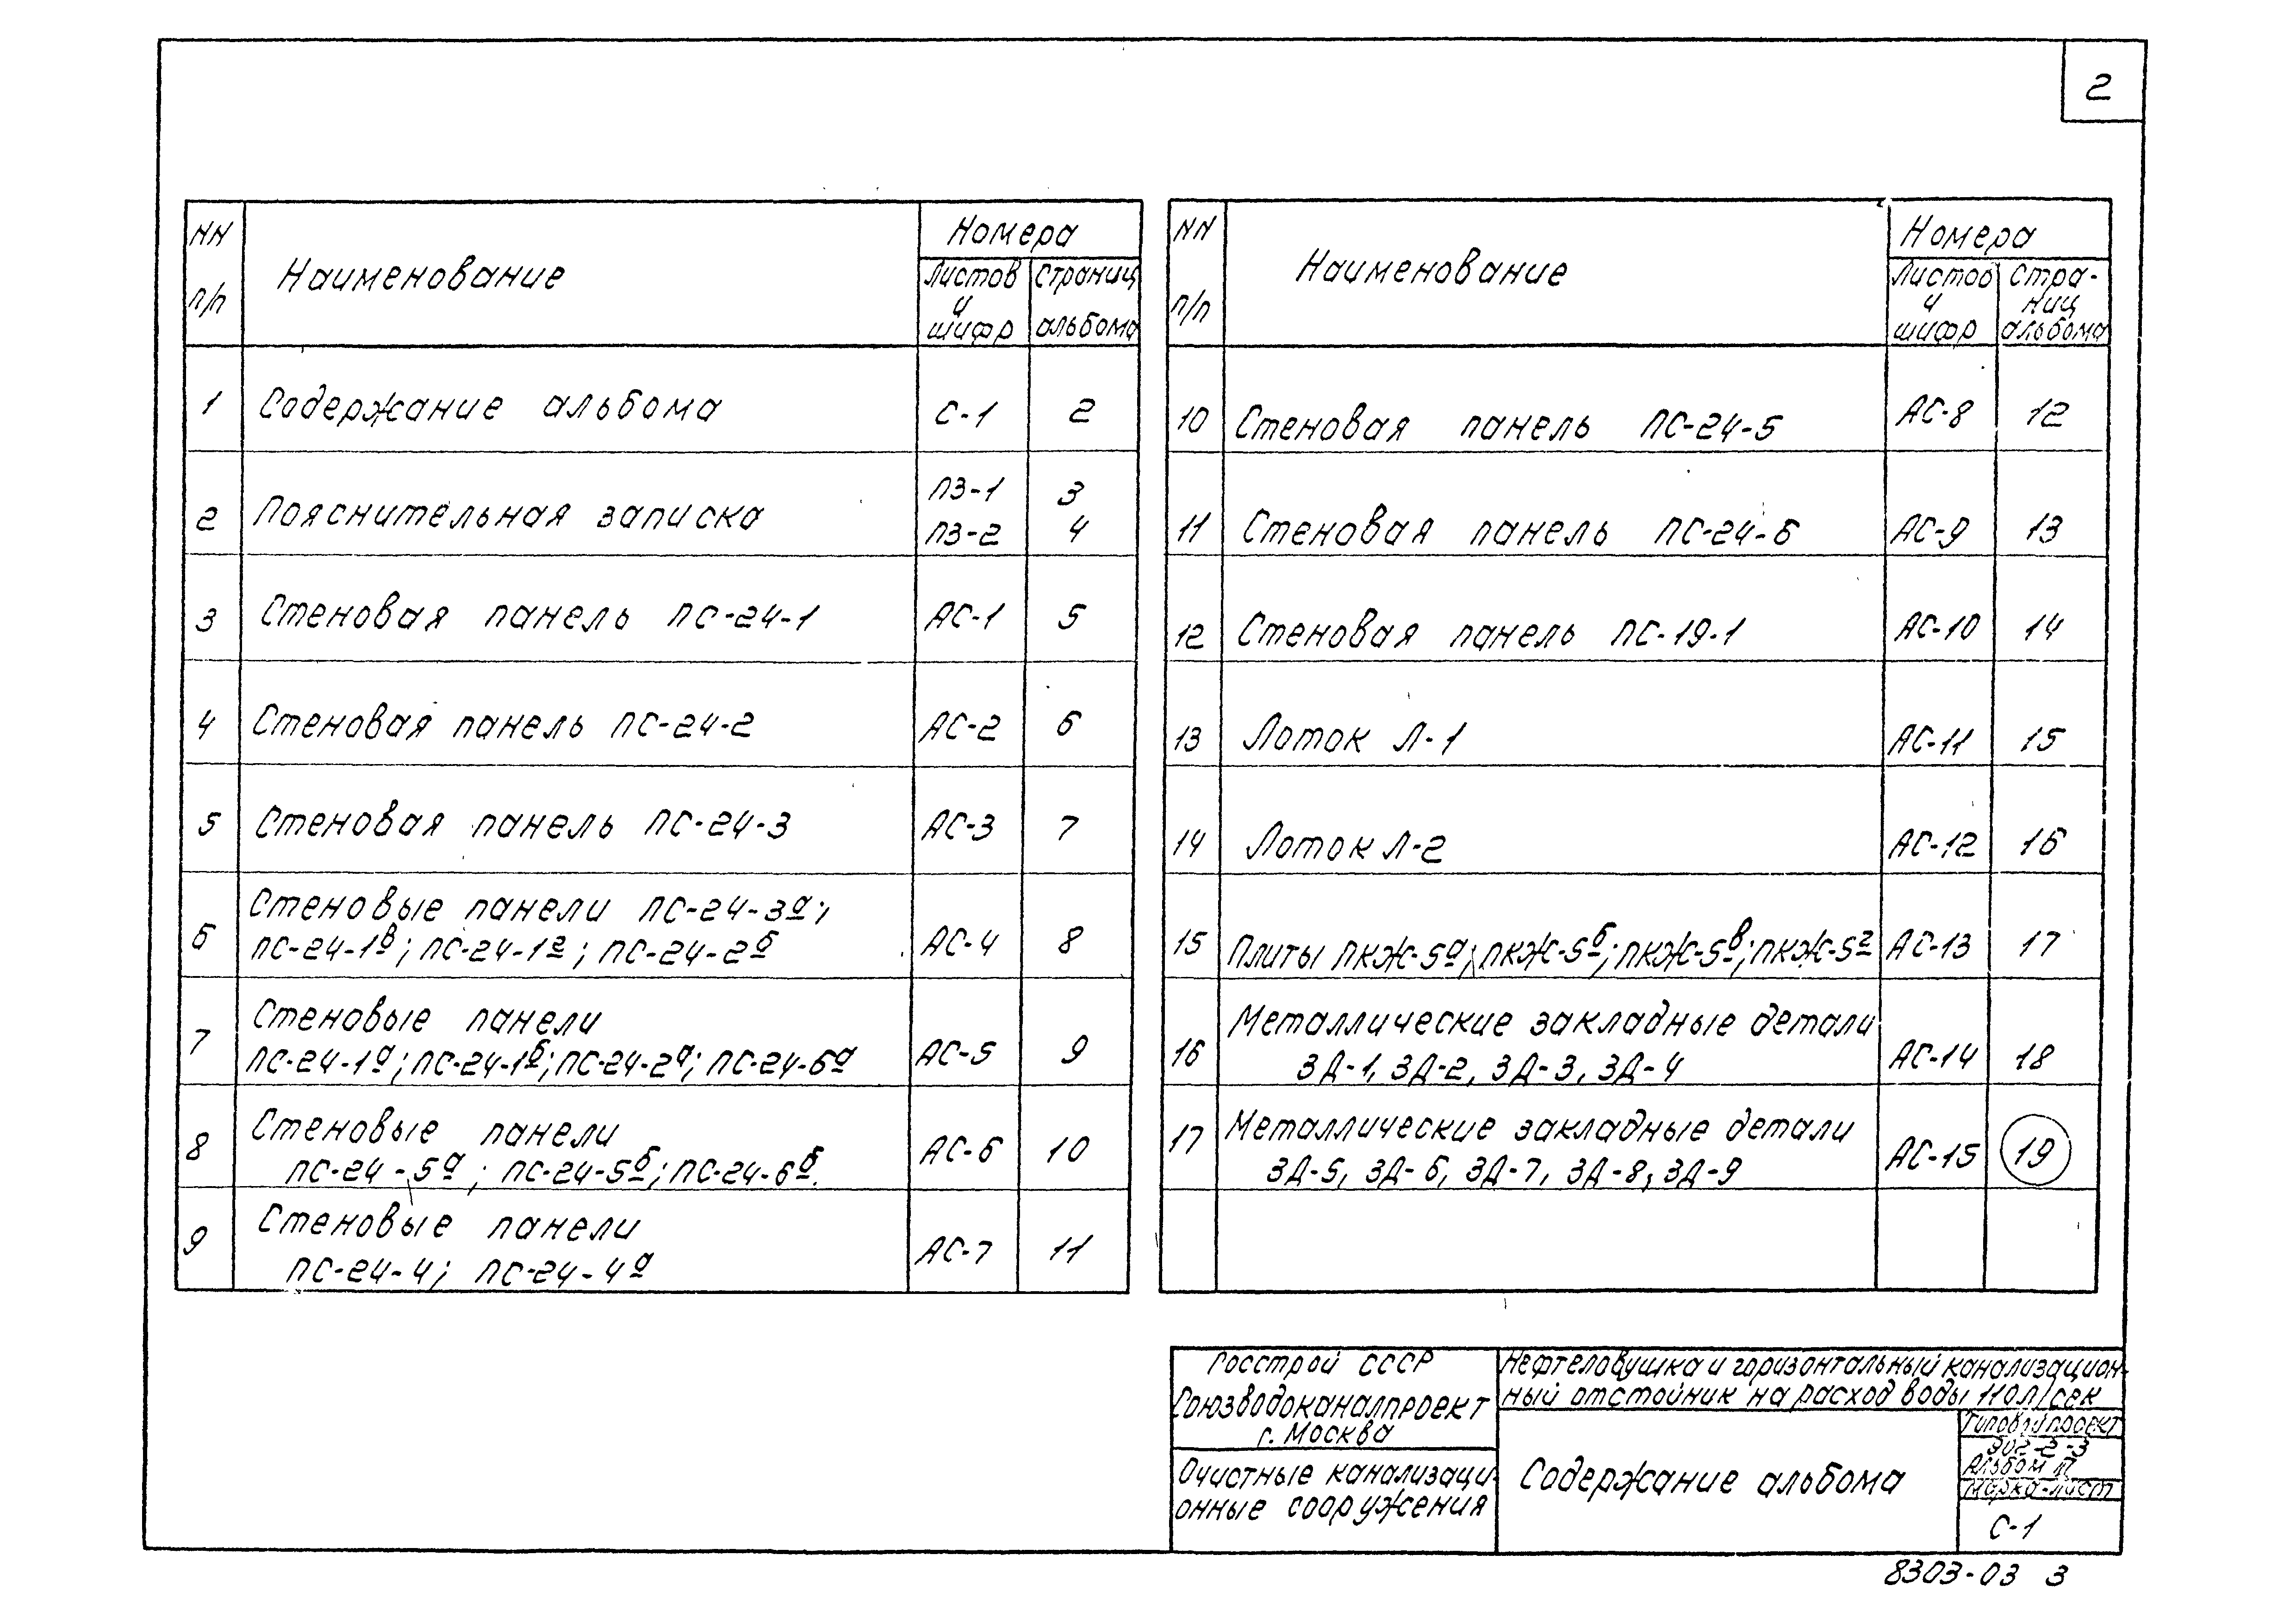 2
NN п/п Наименование Номера
Листов и шифр Страниц альбома
1 Содержание альбома С-1 2
2 Пояснительная записка ПЗ-1 3
ПЗ-2 4
3 Стеновая панель ПС-24-1 АС-1 5
4 Стеновая панель ПС-24-2 АС-2 6
5 Стеновая панель ПС-24-3 АС-3 7
6 Стеновые панели ПС-24-3а;
ПС-24-1в; ПС-24-1г; ПС-24-2б АС-4 8
7 Стеновые панели
ПС-24-1а; ПС-24-1б; ПС-24-2а; ПС-24-6а АС-5 9
8 Стеновые панели
ПС-24-5а; ПС-24-5б; ПС-24-6б. АС-6 10
9 Стеновые панели
ПС-24-4; ПС-24-4а АС-7 11
NN п/п Наименование Номера
Листов и шифр Стра-
ниц
альбома
10 Стеновая панель ПС-24-5 АС-8 12
11 Стеновая панель ПС-24-6 АС-9 13
12 Стеновая панель ПС-19-1 АС-10 14
13 Лоток Л-1 АС-11 15
14 Лоток Л-2 АС-12 16
15 Плиты ПКЖ-5а; ПКЖ-5б; ПКЖ-5в; ПКЖ-5г АС-13 17
16 Металлические закладные детали
ЗД-1, ЗД-2, ЗД-3, ЗД-4 АС-14 18
17 Металлические закладные детали
ЗД-5, ЗД-6, ЗД-7, ЗД-8, ЗД-9 АС-15 19
Госстрой СССР
Союзводоканалпроект
г. Москва
Очистные канализаци-
онные сооружения
Нефтеловушка и горизонтальный канализацион-
ный отстойник на расход воды 110л/сек
Содержание альбома
Типовой проект
902-2-3
Альбом
Марка-лист
С-1
8303-03 3